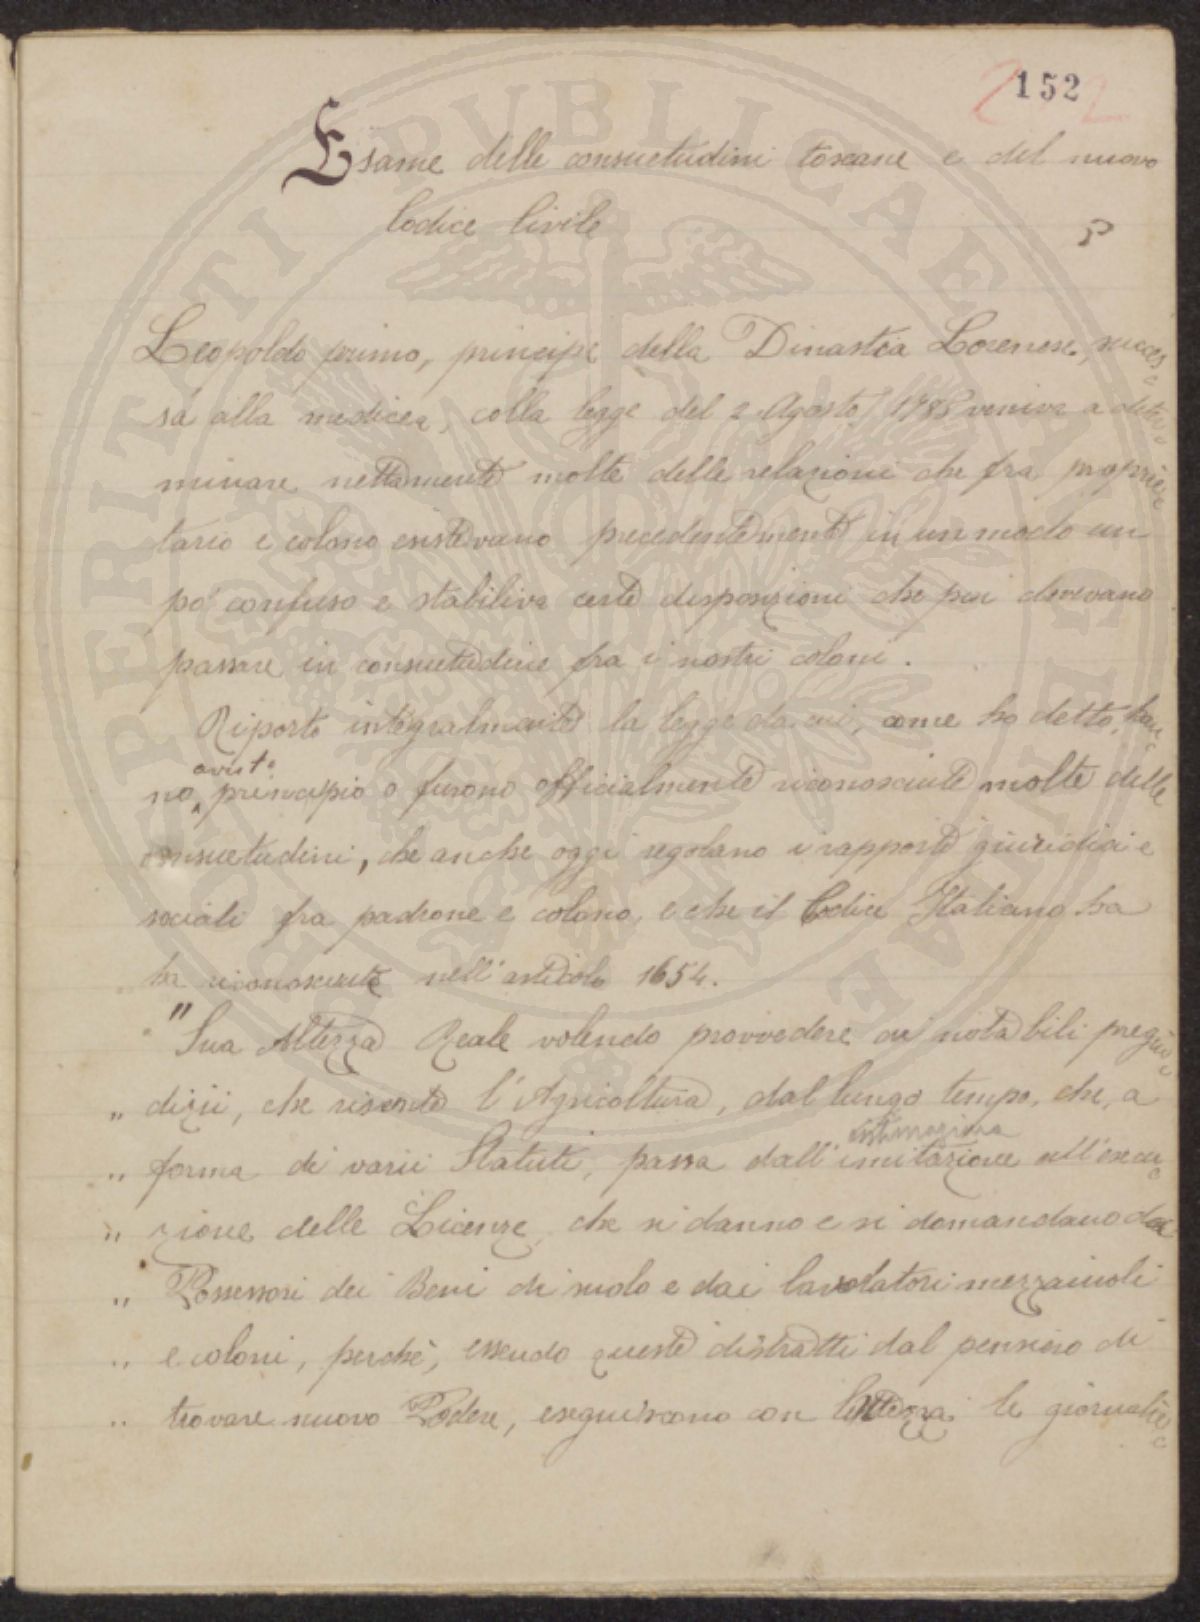 152
Esame delle consuetudini toscane e del nuovo
Codice Civile
Leopoldo primo, principe della Dinastia Lorenese, succes-
sa alla medicea, colla legge del 2 Agosto 1785 veniva a deter-
minare nettamente molte delle relazioni che fra proprie-
tario e colono esistevano precedentemente in un modo un
po' confuso e stabiliva certe disposizioni che poi dovevano
passare in consuetudine fra i nostri coloni.
Riporto integralmente la legge da cui, come ho detto, han-
avuto
no principio o furono officialmente riconosciute molte delle
consuetudini, che anche oggi regolano i rapporti giuridici e
sociali fra padrone e colono, e che il Codice Italiano ha
ha riconosciute nell'articolo 1654.
"Sua Altezza Reale volendo provvedere ai notabili pregiu-
" dizii, che risente l'Agricoltura, dal lungo tempo, che, a
intimazione
" forma di varii Statuti, passa dall'imitazione all'esecu-
" zione delle Licenze, che si danno e si domandano dai
" Possessori dei Beni di suolo e dai lavoratori mezzaiuoli
" e coloni, perchè, essendo questi distratti dal pensiero di
" trovare nuovo Podere, eseguiscono con lentezza le giornalie-
PERITI PUBLICAE